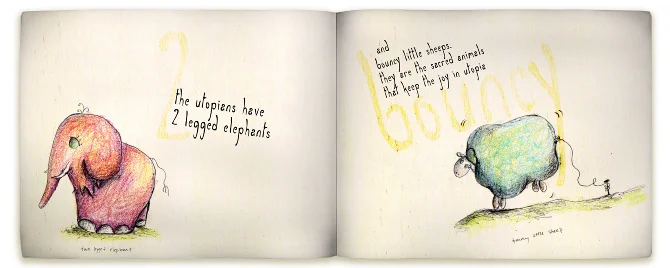 2
the utopians have
2 legged elephants
two legged elephant
and
bouncy little sheeps.
they are the sacred animals
that keep the joy in utopia
bouncy
bouncy little sheep